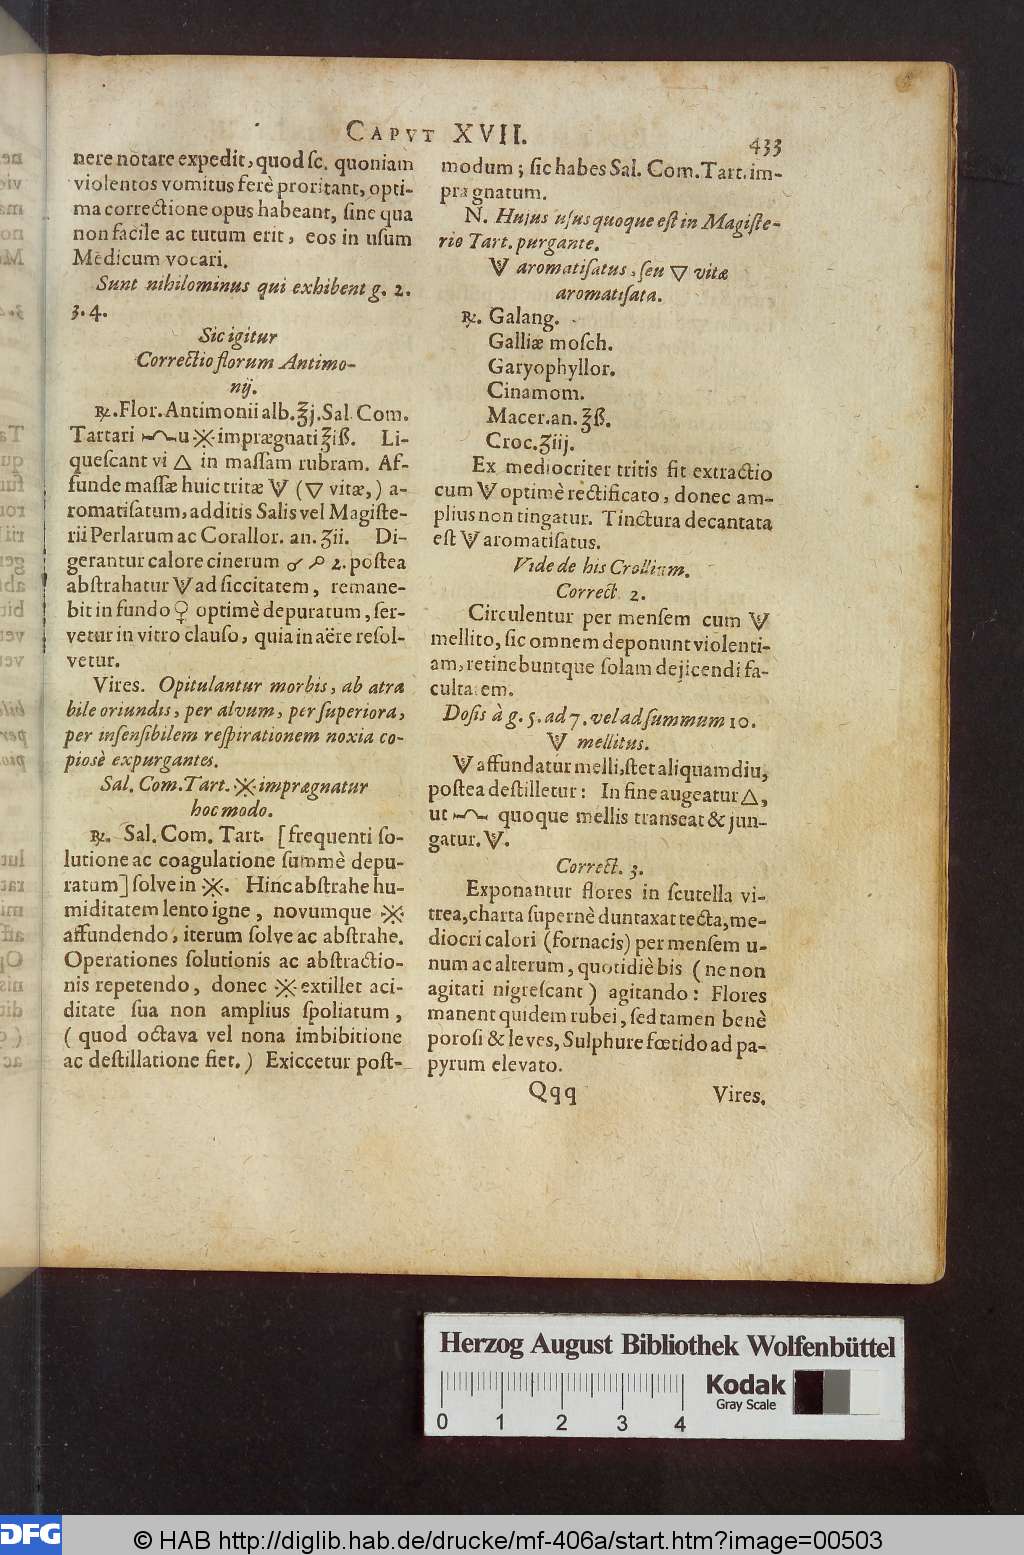 CAPVT XVII.
433
nere notare expedit, quod ſc. quoniam
violentos vomitus ferè proritant, opti-
ma correctione opus habeant, ſine qua
non facile ac tutum erit, eos in uſum
Medicum vocari.
Sunt nihilominus qui exhibent g. 2.
3. 4.
Sic igitur
Correctio florum Antimo-
nij.
℞. Flor. Antimonii alb. ℥j. Sal. Com.
Tartari u imprægnati ℥iß. Li-
queſcant vi 🜂 in maſſam rubram. Af-
funde maſſæ huic tritæ (🜄 vitæ,) a-
romatiſatum, additis Salis vel Magiſte-
rii Perlarum ac Corallor. an. ʒii. Di-
gerantur calore cinerum 2. poſtea
abſtrahatur ad ſiccitatem, remane-
bit in fundo ♀ optimè depuratum, ſer-
vetur in vitro clauſo, quia in aëre reſol-
vetur.
Vires. Opitulantur morbis, ab atra
bile oriundis, per alvum, per ſuperiora,
per inſenſibilem reſpirationem noxia co-
piosè expurgantes.
Sal. Com. Tart. imprægnatur
hoc modo.
℞. Sal. Com. Tart. [frequenti ſo-
lutione ac coagulatione ſummè depu-
ratum] ſolve in . Hinc abſtrahe hu-
miditatem lento igne, novumque
affundendo, iterum ſolve ac abſtrahe.
Operationes ſolutionis ac abſtractio-
nis repetendo, donec extillet aci-
ditate ſua non amplius ſpoliatum,
(quod octava vel nona imbibitione
ac deſtillatione fiet.) Exiccetur poſt-
modum; ſic habes Sal. Com. Tart. im-
prægnatum.
N. Hujus uſus quoque eſt in Magiſte-
rio Tart. purgante.
aromatiſatus, ſeu 🜄 vitæ
aromatiſata.
℞. Galang.
Galliæ moſch.
Garyophyllor.
Cinamom.
Macer. an. ℥ß.
Croc. ʒiij.
Ex mediocriter tritis fit extractio
cum optimè rectificato, donec am-
plius non tingatur. Tinctura decantata
eſt aromatiſatus.
Vide de his Crollium.
Correct. 2.
Circulentur per menſem cum
mellito, ſic omnem deponunt violenti-
am, retinebuntque ſolam dejicendi fa-
cultatem.
Doſis à g. 5. ad 7. vel ad ſummum 10.
mellitus.
affundatur melli, ſtet aliquamdiu,
poſtea deſtilletur: In fine augeatur 🜂,
ut quoque mellis transeat & jun-
gatur.
Correct. 3.
Exponantur flores in ſcutella vi-
trea, charta ſupernè duntaxat tecta, me-
diocri calori (fornacis) per menſem u-
num ac alterum, quotidiè bis (ne non
agitati nigreſcant) agitando: Flores
manent quidem rubei, ſed tamen benè
poroſi & leves, Sulphure fœtido ad pa-
pyrum elevato.
Qqq
Vires.
Herzog August Bibliothek Wolfenbüttel
0 1 2 3 4
Kodak
Gray Scale
DFG
© HAB http://diglib.hab.de/drucke/mf-406a/start.htm?image=00503